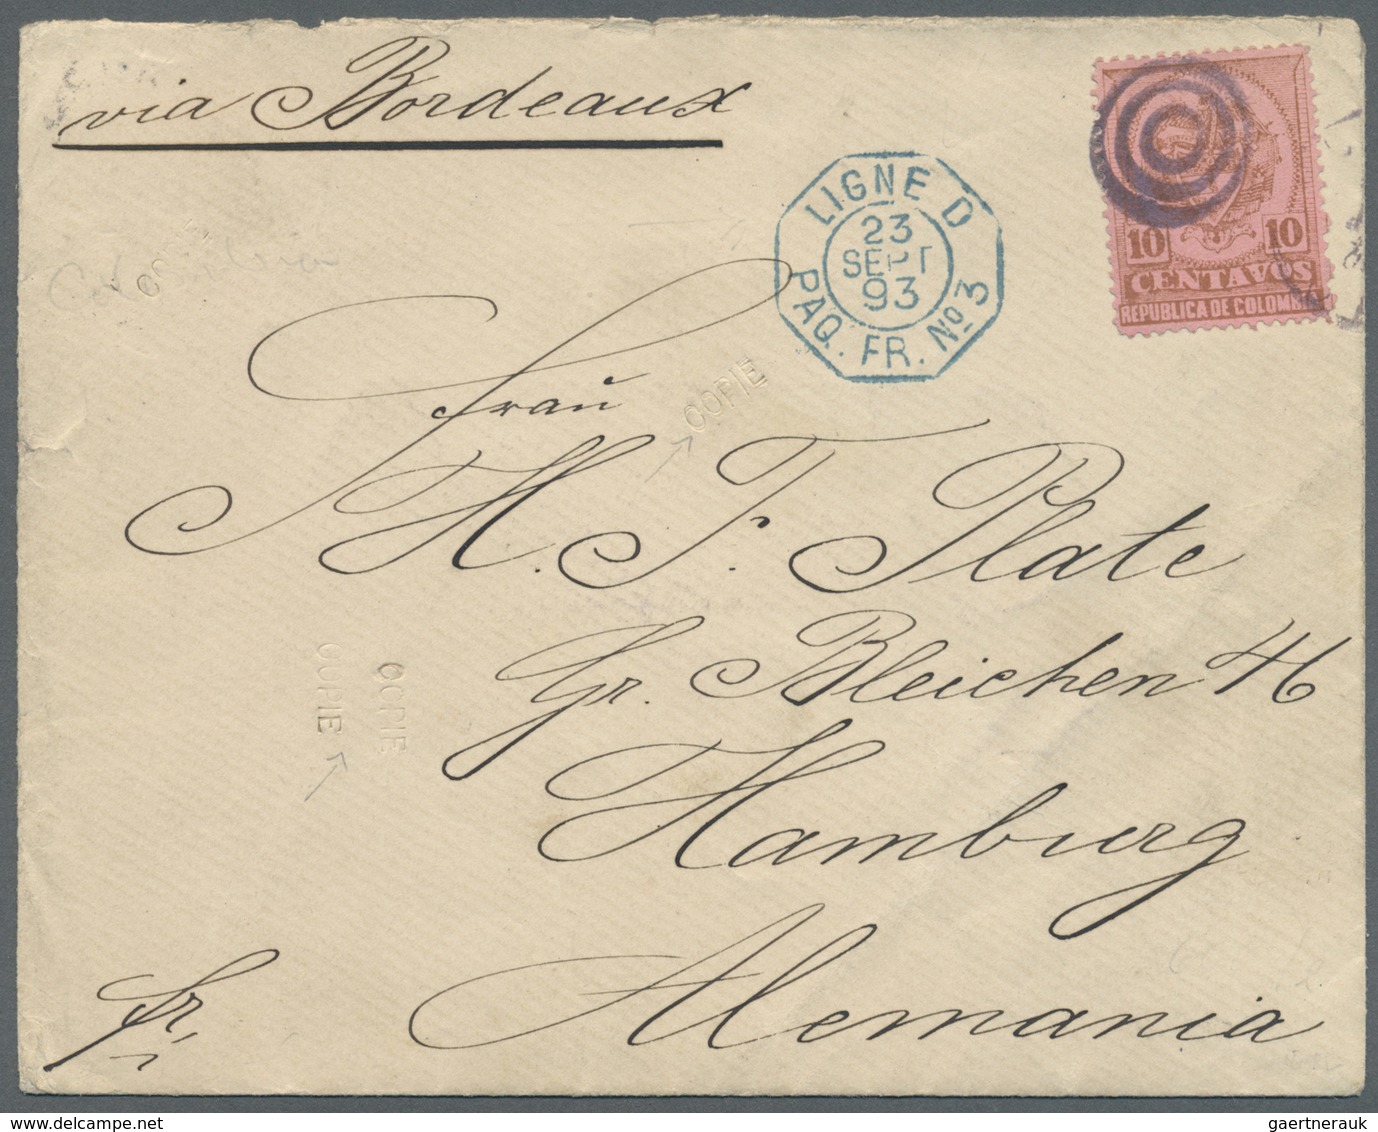 via Bordeaux
LIGNE D
23
SEPT
93
PAQ. FR. No 3
10 10
CENTAVOS
REPUBLICA DE COLOMB
COPIE
Frau
H. F. Plate
Gr. Bleichen 46
COPIE
COPIE
Hamburg
fr.
Alemania
gaertnerauk